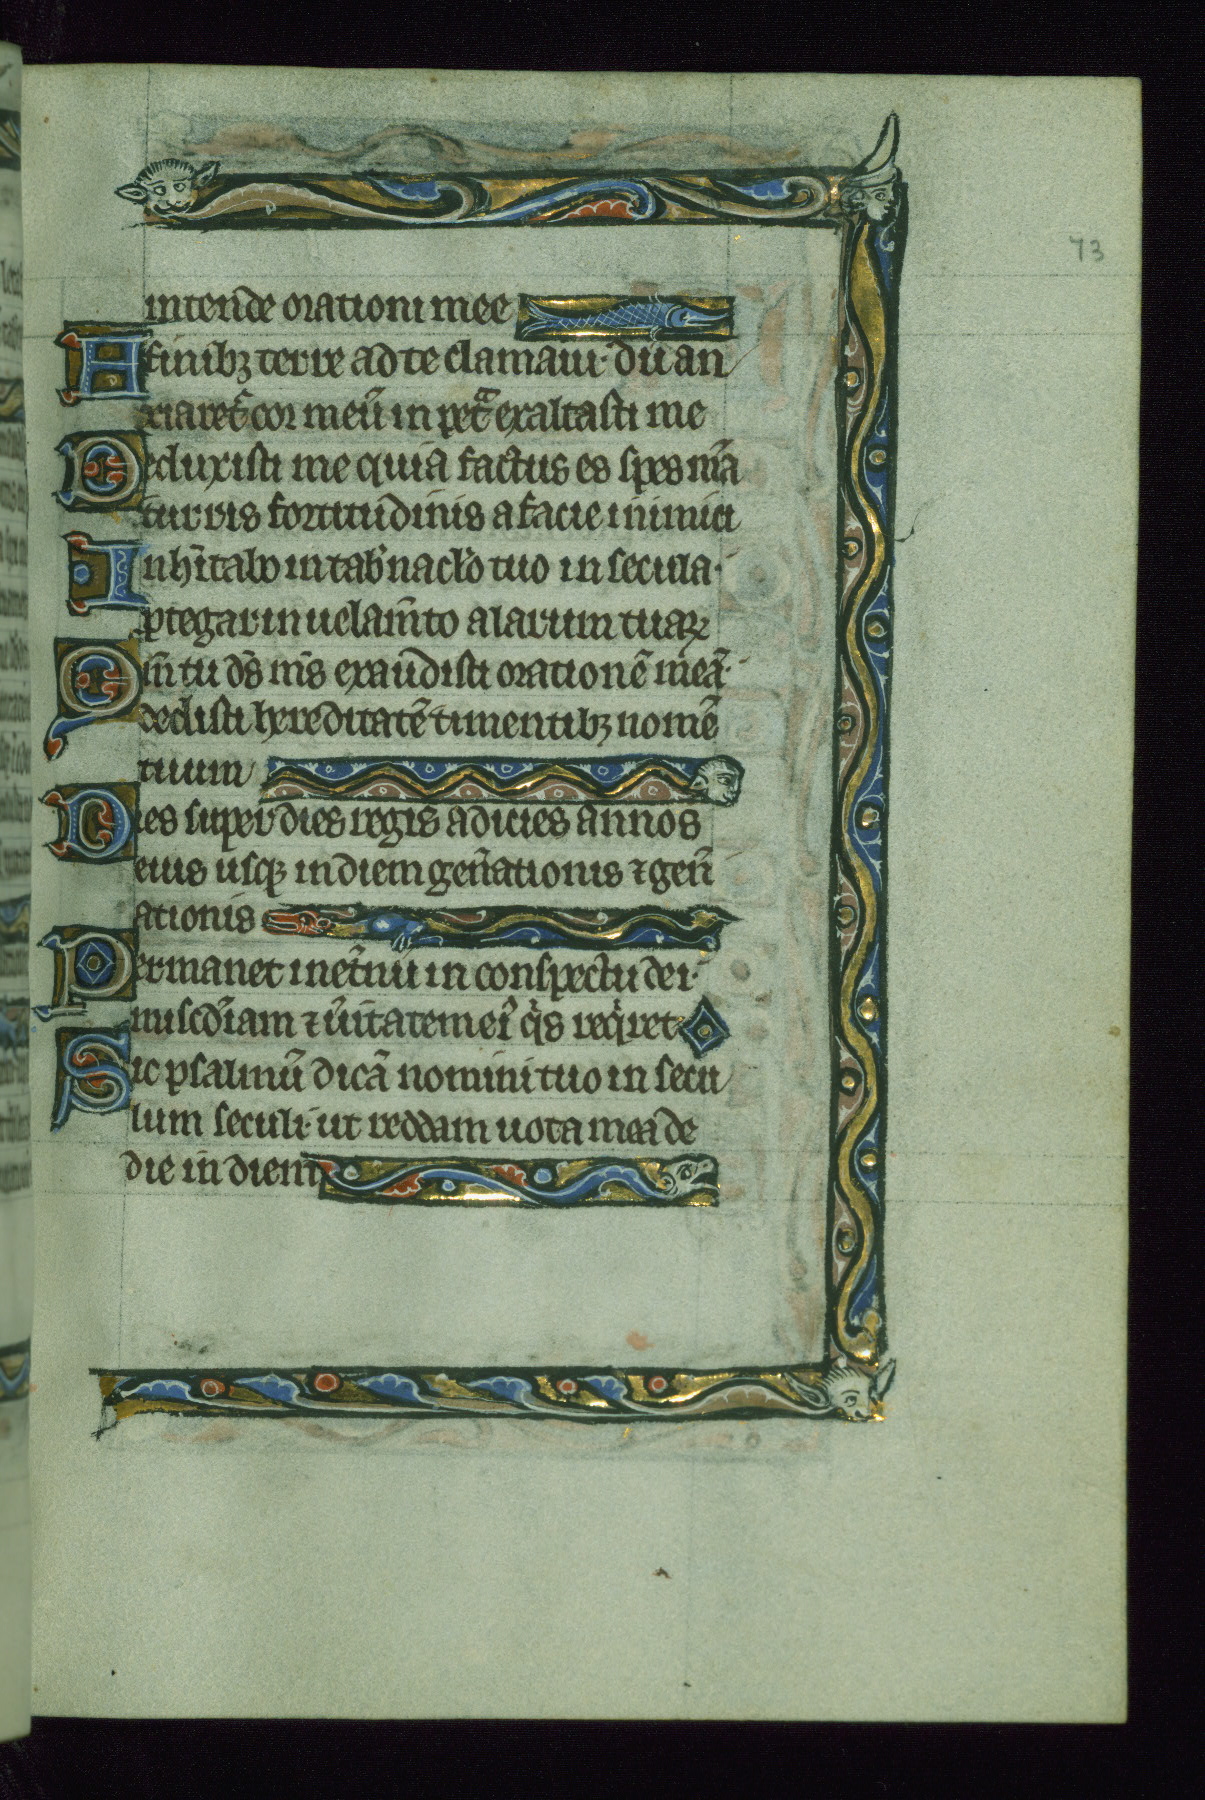 73
intende orationi mee
A finibꝫ terre ad te clamaui· dū an
xiaret᷑ cor meū in pet͛ exaltasti me
Deduxisti me quia factus es spes m̄a
turris fortitudinis a facie inimici
Inh̄itabo in tab̾nac̄lo tuo in secula·
ꝓtegar in uelam̄to alarum tuaꝝ
Qm̄ tu d̄s m̄s exaudisti orationē meā·
dedisti hereditatē timentibꝫ nomē
tuum
Dies super dies regis adicies annos
eius usqꝫ in diem gen̄ationis ⁊ gen̄
ationis
Permanet in et̾nū in conspectu dei·
misc̄diam ⁊ ūitatem ei᷒ qͥs reqͥret
Sic psalmū dicā nomini tuo in secu
lum seculi· ut reddam uota mea de
die in diem